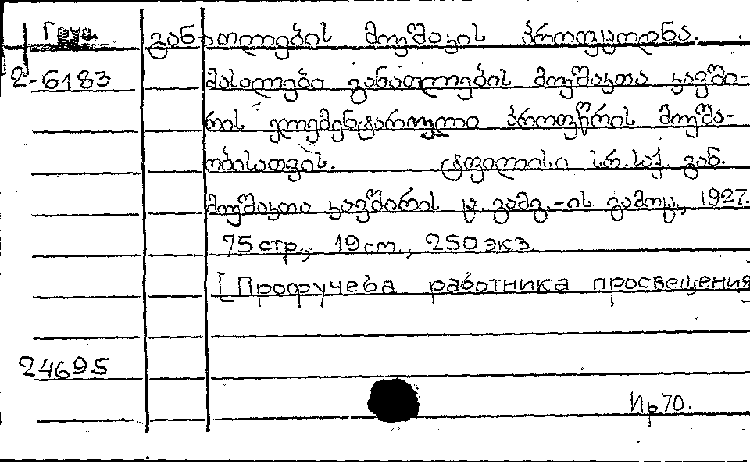 Груз.
განათლების მუშაკის პროფცოდნა.
2-6183
მასალები განათლების მუშაკთა კავში-
რის ელემენტარული პროფწრის მუშა-
ობისათვის. ტფილისი სრ. საქ. გან.
მუშაკთა კავშირის ც. გამგ.-ის გამოც., 1927.
75 стр., 19 cm., 250 экз.
[Профучеба работника просвещения
24695
Ир 70.